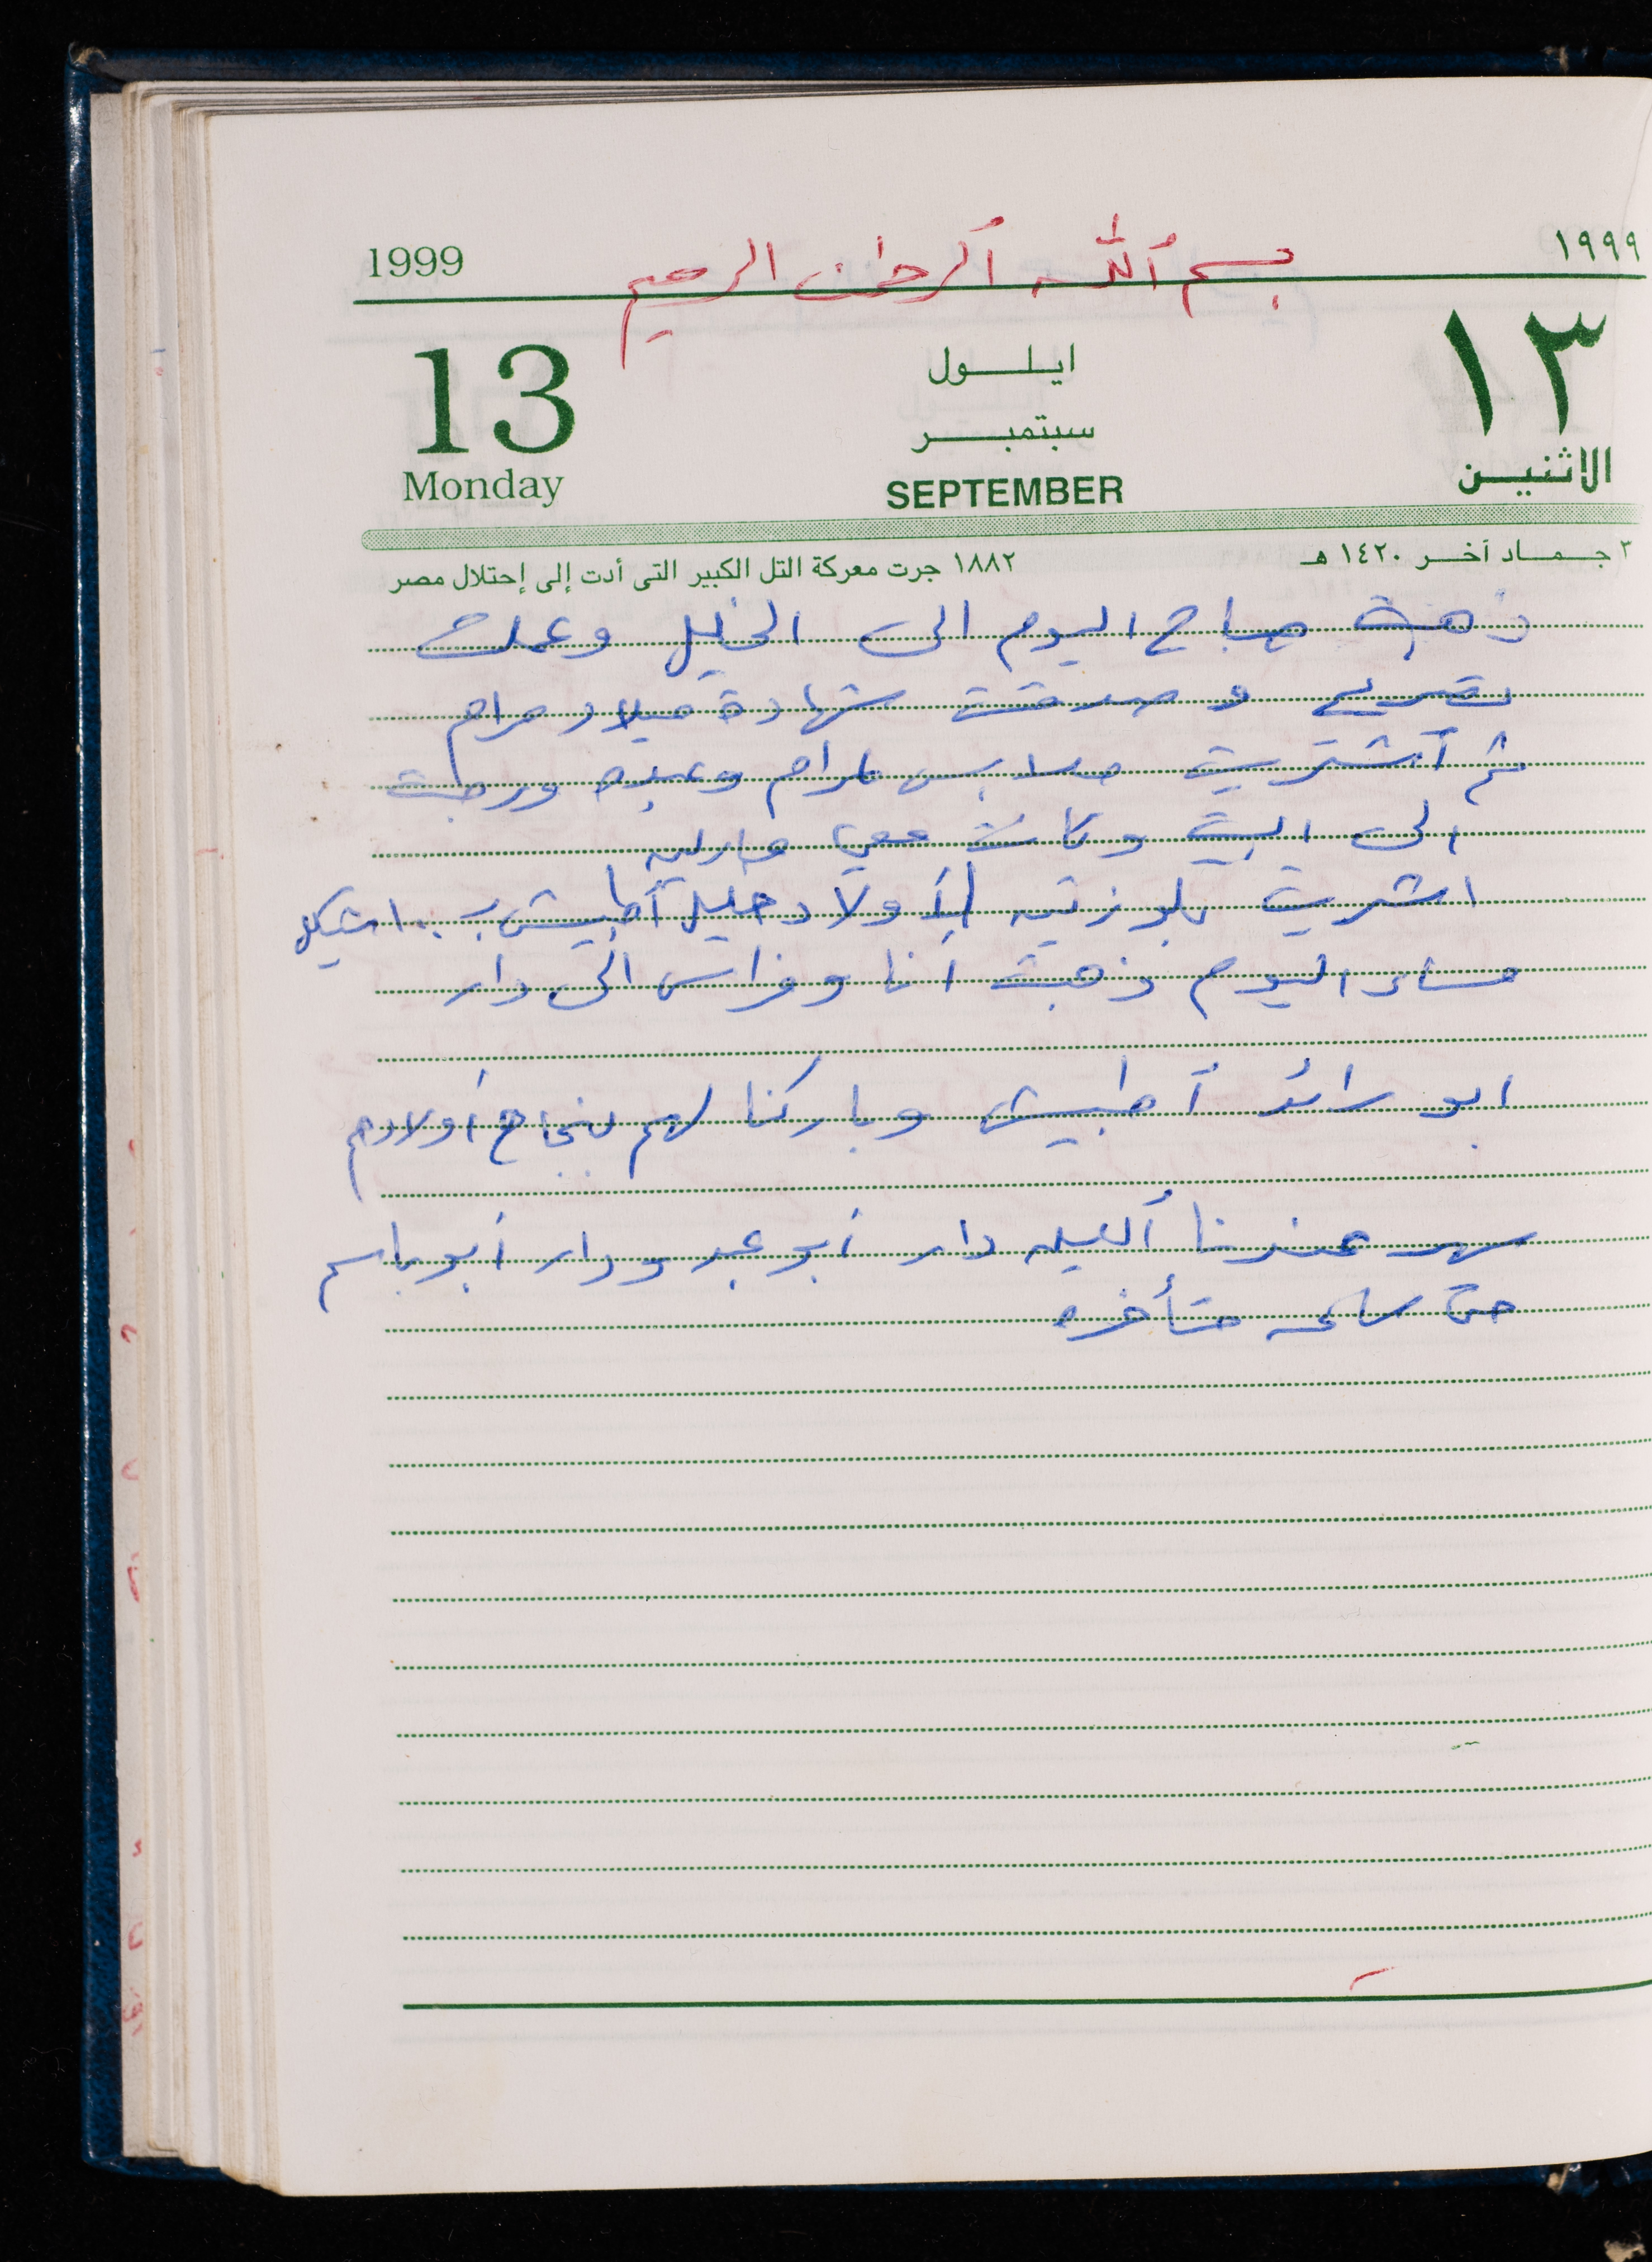 1999 بسم الله الرحمن الرحيم ١٩٩٩
13 ايلول ١٣
سبتمبر
Monday SEPTEMBER الاثنين
٣ جماد آخر ١٤٢٠ هـ ١٨٨٢ جرت معركة التل الكبير التى أدت إلى إحتلال مصر
ذهبت صباح اليوم الى الخليل وعملت
تصريح وصدقت شهادة ميلاد مرام
ثم اشتريت ملابس لمرام وعبده ورجعت
الى البيت وكانت معي مارلين
اشتريت بلوزتين لأولاد خليل اطبيش
مساء اليوم ذهبت أنا وفراس الى دار
ابو رائد اطبيش وباركنا لهم بنجاح أولادهم
سهر عندنا الليله دار أبو عبد ودار أبو باسم
حتى ساعه متأخره